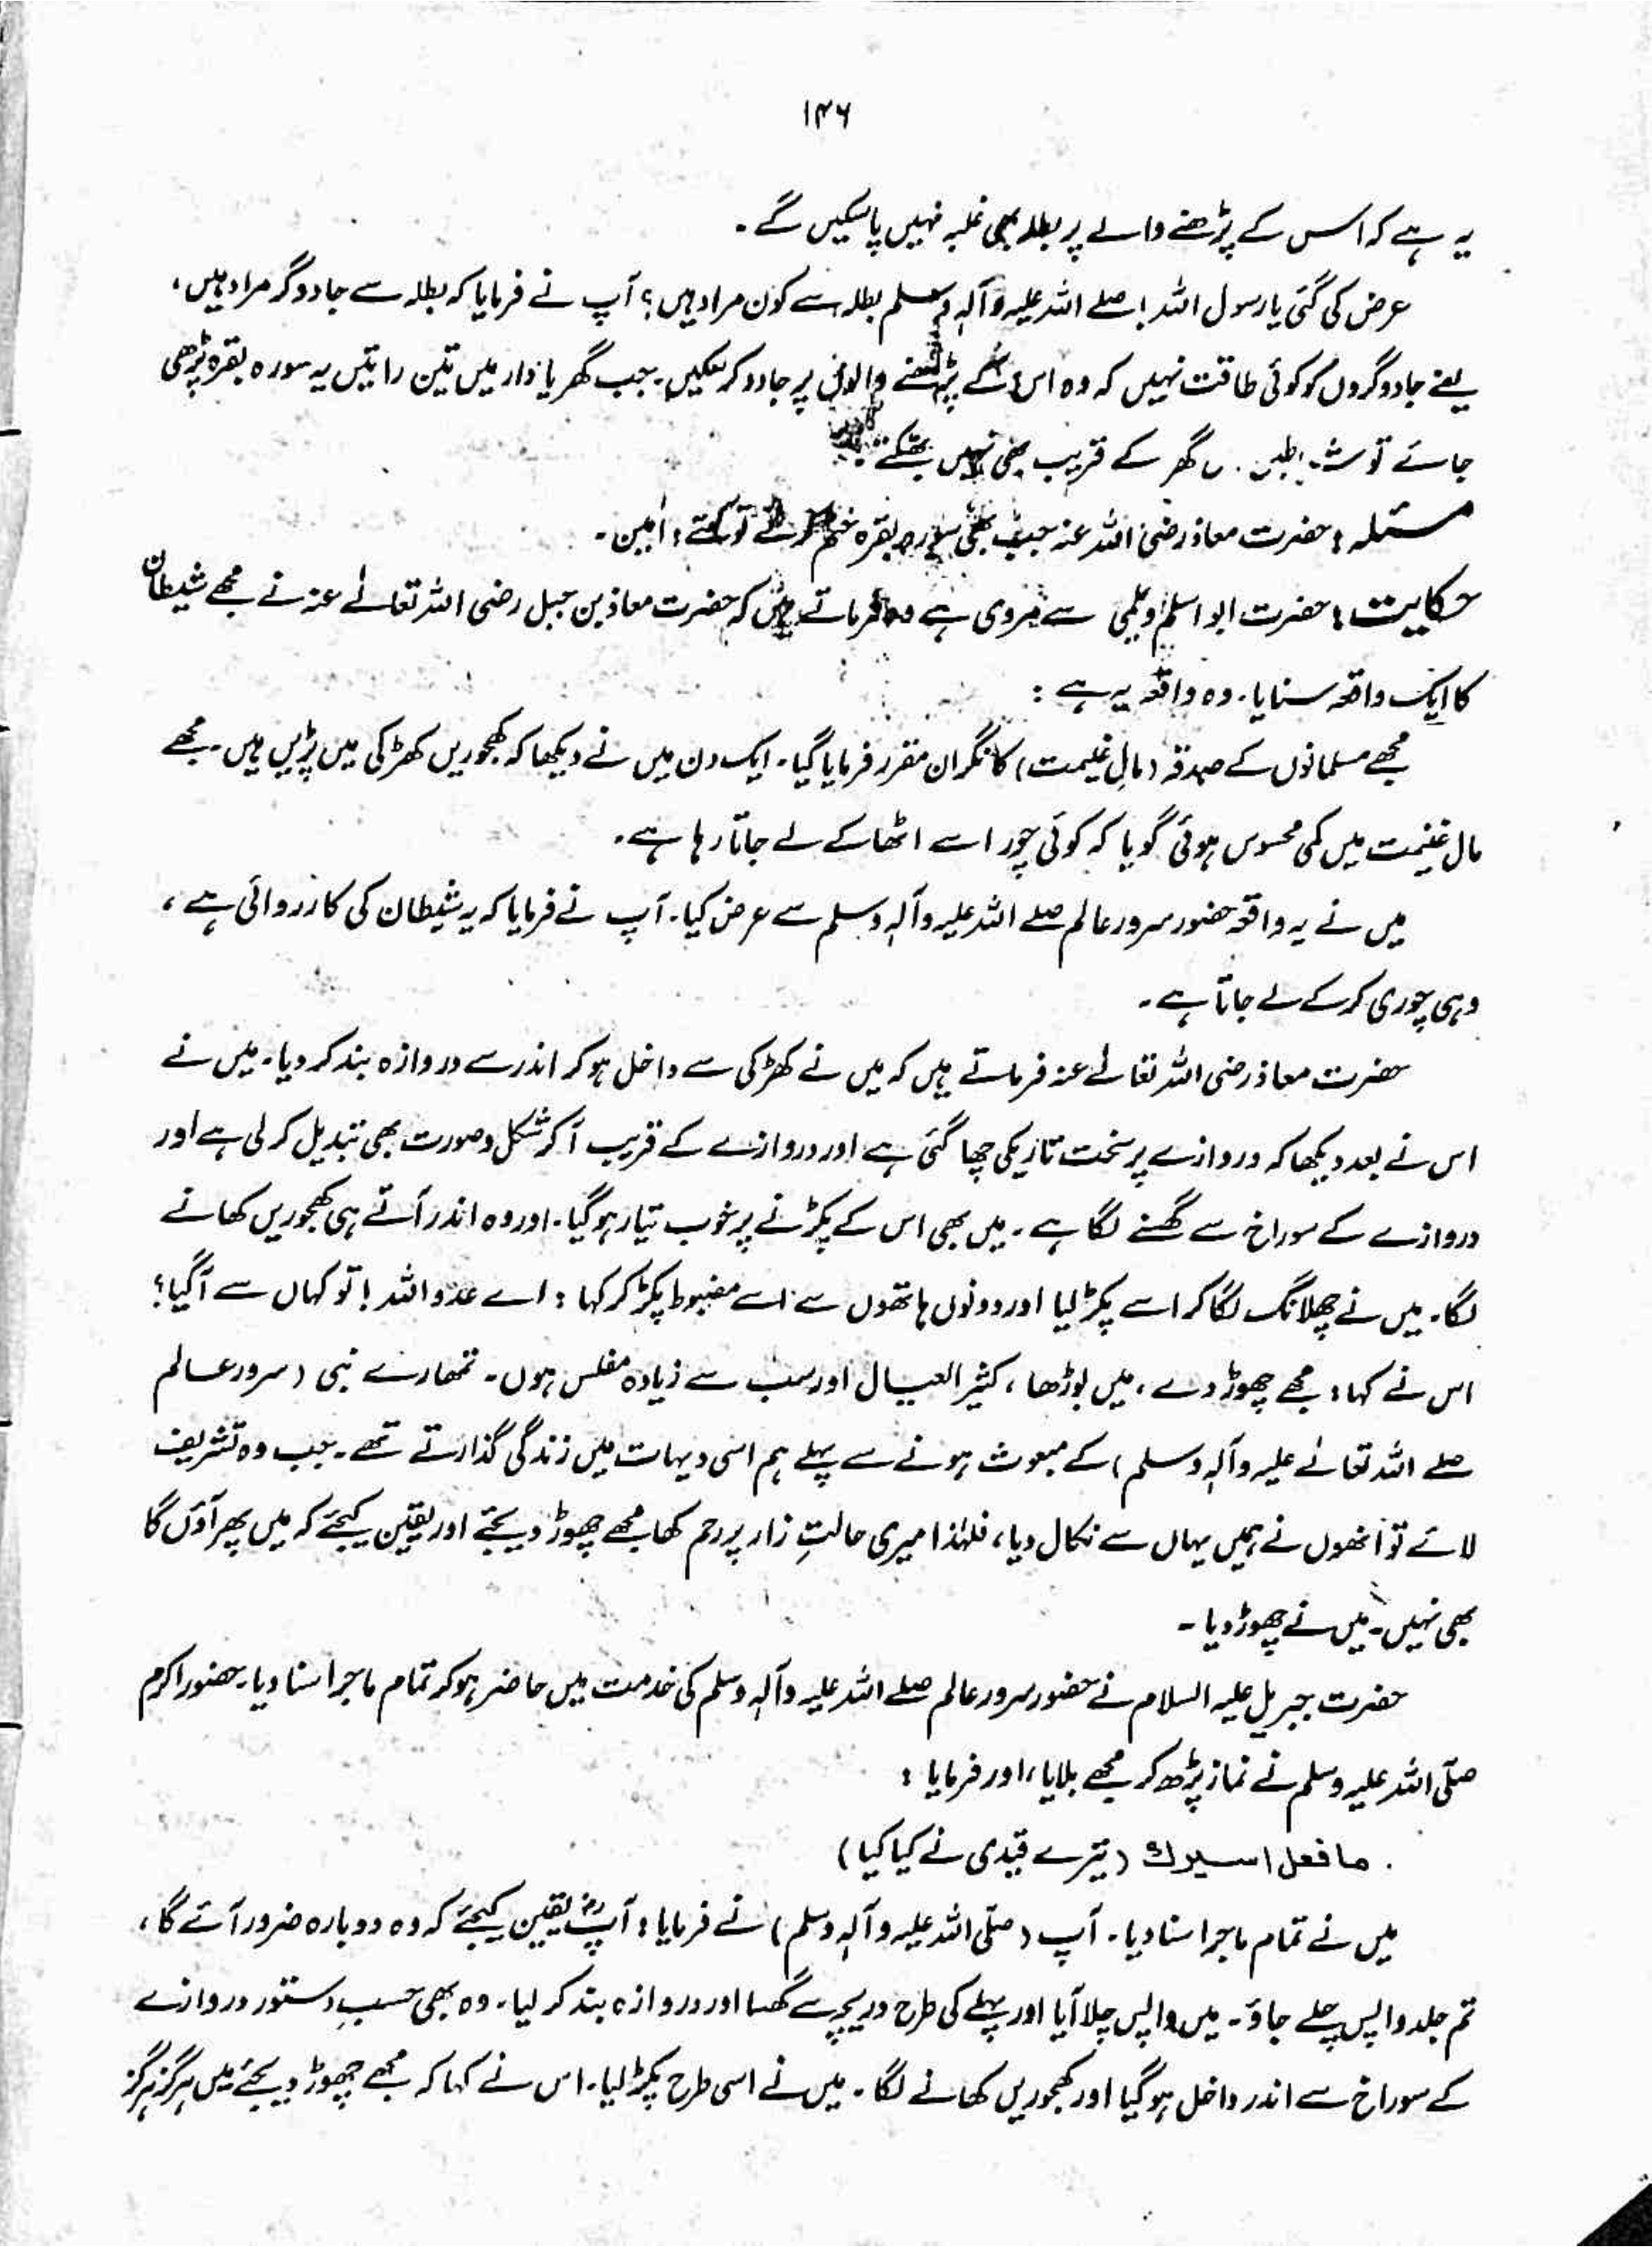 ۱۴۶
یہ ہے کہ اس کے پڑھنے والے پر بطلہ بھی غلبہ نہیں پا سکیں گے۔
عرض کی گئی یا رسول اللہ! صلے اللہ علیہ وآلہ وسلم بطلہ سے کون مراد ہیں؟ آپ نے فرمایا کہ بطلہ سے جادوگر مراد ہیں،
یعنے جادوگروں کو کوئی طاقت نہیں کہ وہ اس کے پڑھنے والوں پر جادو کر سکیں۔ جب گھر یا دار میں تین راتیں یہ سورہ بقرہ پڑھی
جائے تو گھر کے قریب بھی نہیں
مسئلہ: حضرت معاذ رضی اللہ عنہ جب بھی سورہ بقرہ ختم کرتے تو کہتے: اٰمین۔
حکایت: حضرت ابو اسلم سے مروی ہے وہ فرماتے ہیں کہ حضرت معاذ بن جبل رضی اللہ تعالےٰ عنہ نے مجھے شیطان
کا ایک واقعہ سنایا۔ وہ واقعہ یہ ہے:
مجھے مسلمانوں کے صدقہ (مالِ غنیمت) کا نگران مقرر فرمایا گیا۔ ایک دن میں نے دیکھا کہ کھجوریں کھڑکی میں پڑیں ہیں۔ مجھے
مال غنیمت میں کمی محسوس ہوئی گویا کہ کوئی چور اسے اٹھا کے لے جاتا رہا ہے۔
میں نے یہ واقعہ حضور سرور عالم صلے اللہ علیہ وآلہ وسلم سے عرض کیا۔ آپ نے فرمایا کہ یہ شیطان کی کارروائی ہے،
وہی چوری کر کے لے جاتا ہے۔
حضرت معاذ رضی اللہ تعالےٰ عنہ فرماتے ہیں کہ میں نے کھڑکی سے داخل ہو کر اندر سے دروازہ بند کر دیا۔ میں نے
اس نے بعد دیکھا کہ دروازے پر سخت تاریکی چھا گئی ہے اور دروازے کے قریب آ کر شکل و صورت بھی تبدیل کر لی ہے اور
دروازے کے سوراخ سے گھسنے لگا ہے۔ میں بھی اس کے پکڑنے پر خوب تیار ہو گیا۔ اور وہ اندر آتے ہی کھجوریں کھانے
لگا۔ میں نے چھلانگ لگا کر اسے پکڑ لیا اور دونوں ہاتھوں سے اسے مضبوط پکڑ کر کہا: اے عدو اللہ! تو کہاں سے آ گیا؟
اس نے کہا: مجھے چھوڑ دے، میں بوڑھا، کثیر العیال اور سب سے زیادہ مفلس ہوں۔ تمھارے نبی (سرور عالم
صلے اللہ تعالےٰ علیہ وآلہ وسلم) کے مبعوث ہونے سے پہلے ہم اسی دیہات میں زندگی گذارتے تھے۔ جب وہ تشریف
لائے تو انھوں نے ہمیں یہاں سے نکال دیا، فلہٰذا میری حالتِ زار پر رحم کھا مجھے چھوڑ دیجئے اور یقین کیجئے کہ میں پھر آؤں گا
بھی نہیں۔ میں نے چھوڑ دیا۔
حضرت جبریل علیہ السلام نے حضور سرور عالم صلے اللہ علیہ وآلہ وسلم کی خدمت میں حاضر ہو کر تمام ماجرا سنا دیا۔ حضور اکرم
صلّی اللہ علیہ وسلم نے نماز پڑھ کر مجھے بلایا، اور فرمایا:
ما فعل اسیرك (تیرے قیدی نے کیا کیا)
میں نے تمام ماجرا سنا دیا۔ آپ (صلّی اللہ علیہ وآلہ وسلم) نے فرمایا: آپ یقین کیجئے کہ وہ دوبارہ ضرور آئے گا،
تم جلد واپس چلے جاؤ۔ میں واپس چلا آیا اور پہلے کی طرح دریچہ سے گھسا اور دروازہ بند کر لیا۔ وہ بھی حسبِ دستور دروازے
کے سوراخ سے اندر داخل ہو گیا اور کھجوریں کھانے لگا۔ میں نے اسی طرح پکڑ لیا۔ اس نے کہا کہ مجھے چھوڑ دیجئے میں ہرگز ہرگز